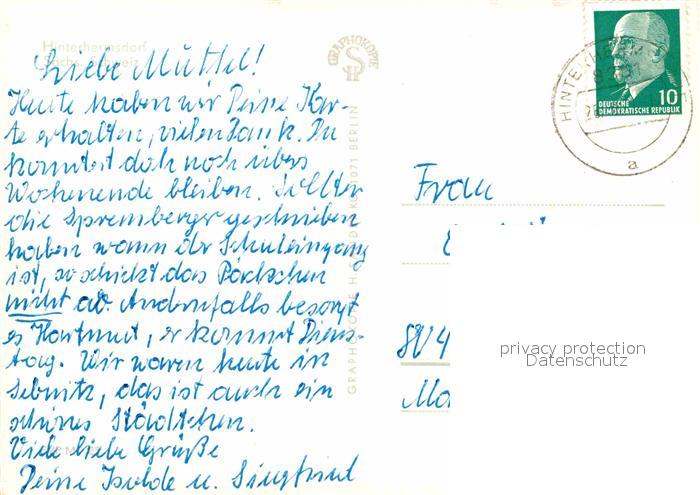 Hinterhermsdorf
Sächs. Schweiz
Liebe Muttel!
Heute haben wir Deine Kar-
te erhalten, vielen Dank. Du
konntest doch noch übers
Wochenende bleiben. Sollten
die Spremberger geschrieben
haben wann der Schuleingang
ist, so schickt das Päckchen
nicht ab. Andernfalls besorgt
es Hartmut, er kommt Diens-
tag. Wir waren heute in
Sebnitz, das ist auch ein
schönes Städtchen.
Viele liebe Grüße
Deine Isolde u. Siegfried
GRAPHOKOPIE
SH
1071 BERLIN
HINTERHERMSDORF
a
10
DEUTSCHE
DEMOKRATISCHE REPUBLIK
Frau
privacy protection
Datenschutz